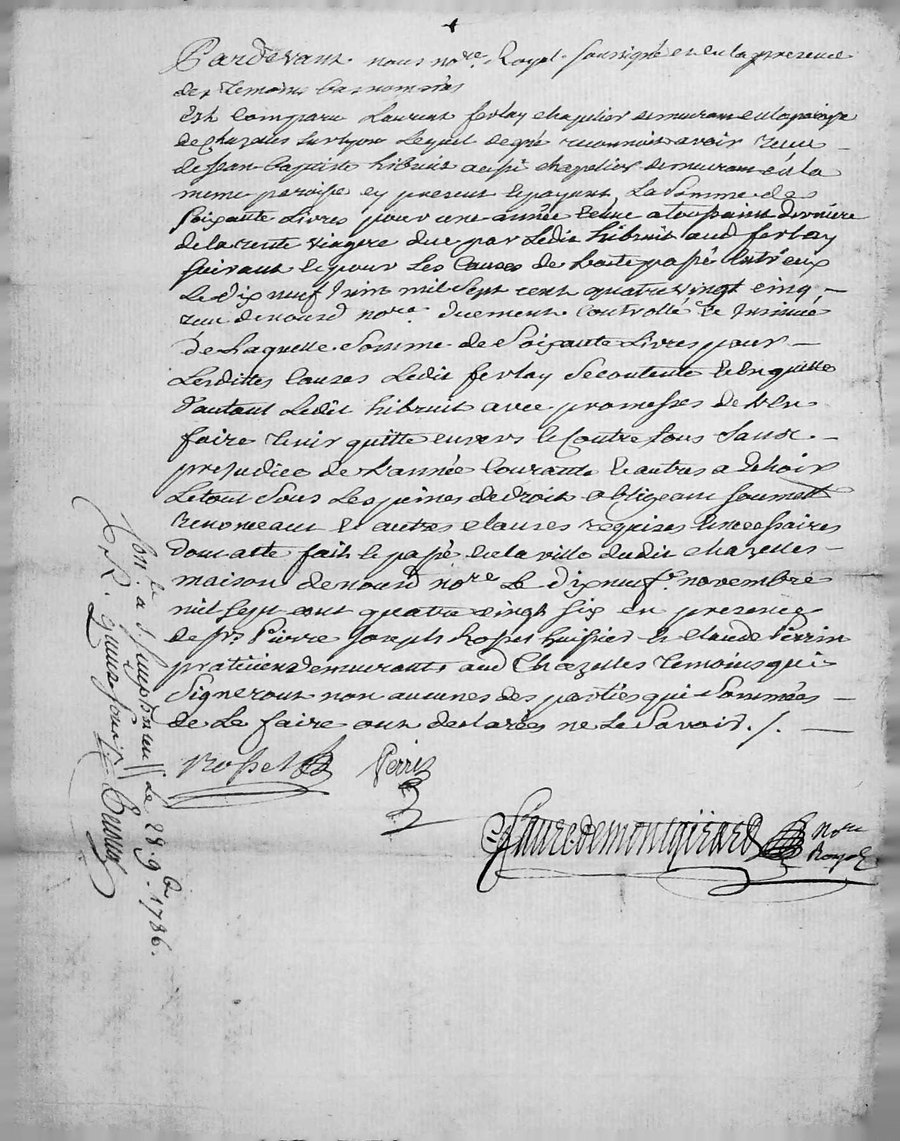 Pardevant nous no.re Royal soussigné et en la presence
des temoins bas nommés
Est Comparu Laurent ferlay chapelier demeurant en la paroisse
de Chazelles sur Lyon Lequel de gré reconnoit avoir reçu
de Jean Baptiste hibruit aussi chapelier demeurant en la
meme paroisse cy present et payant La Somme de
Soixante Livres pour une année échue a toussaint derniere
de la rente viagere due par Ledit hibruit aud ferlay
suivant et pour Les Causes de Lacte passé entr'eux
Le dix neuf Juin mil sept cent quatre vingt cinq
reçu de nourd no.re duement Controllé et Insinué
de Laquelle Somme de Soixante Livres pour
Lesdites Causes Ledit ferlay se contente et en quitte
d'autant Ledit hibruit avec promesses de L'en
faire tenir quitte envers et Contre tous Sans
prejudice de L'année Courante et autres a Echoir
Le tout Sous Les peines de droit obligeant soumett
renonceant et autres clauses requises et necessaires
Dont acte fait et passé en la ville dudit Chazelles
maison de nourd no.re Le dix neuf novembre
mil sept cent quatre vingt six en presence
de Srs Pierre Joseph Rosset huissier et Claude Perrin
praticien demeurants aud Chazelles temoins qui
Signeront non aucunes des parties qui Sommées
de Le faire ont declarées ne Le Savoir ./.
Rosset Perrin
Faure de montgirard No.re
Royal
Con.lé a S. Simphorien Le 28. 9.bre 1786.
R. quinze sous